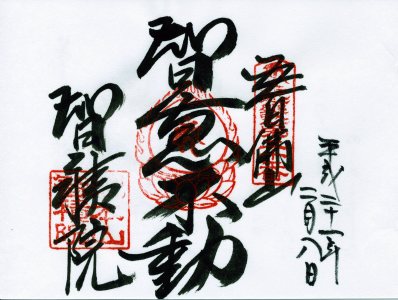 五百佛山
智恵不動
智積院
平成二十一年
二月八日